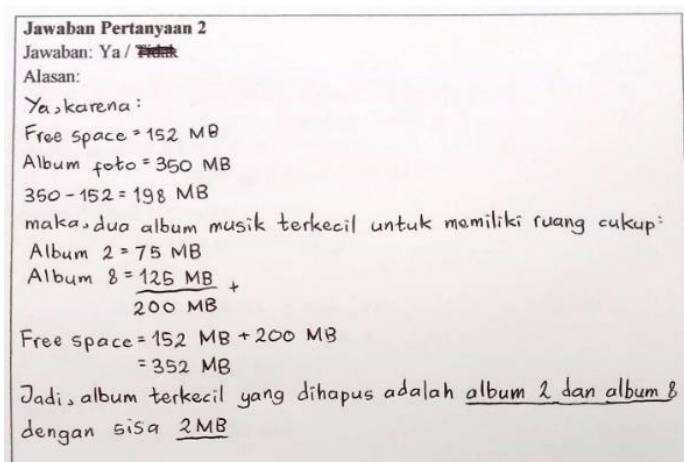 Jawaban Pertanyaan 2
Jawaban: Ya / Tidak
Alasan:
Ya, karena :
Free space = 152 MB
Album foto = 350 MB
350 - 152 = 198 MB
maka, dua album musik terkecil untuk memiliki ruang cukup:
Album 2 = 75 MB
Album 8 = 125 MB +
200 MB
Free space = 152 MB + 200 MB
= 352 MB
Jadi, album terkecil yang dihapus adalah album 2 dan album 8
dengan sisa 2 MB